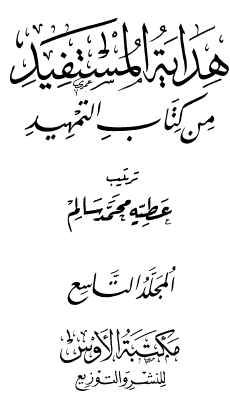 هِدَايَةُ الْمُسْتَفِيدِ
مِن كِتَابِ التَّمْهِيدِ
ترتيب
عَطيّه محمّد سَالِم
المجَلَّدُ التَّاسِع
مَكتَبَةُ الأوسِ
للنشر والتوزيع